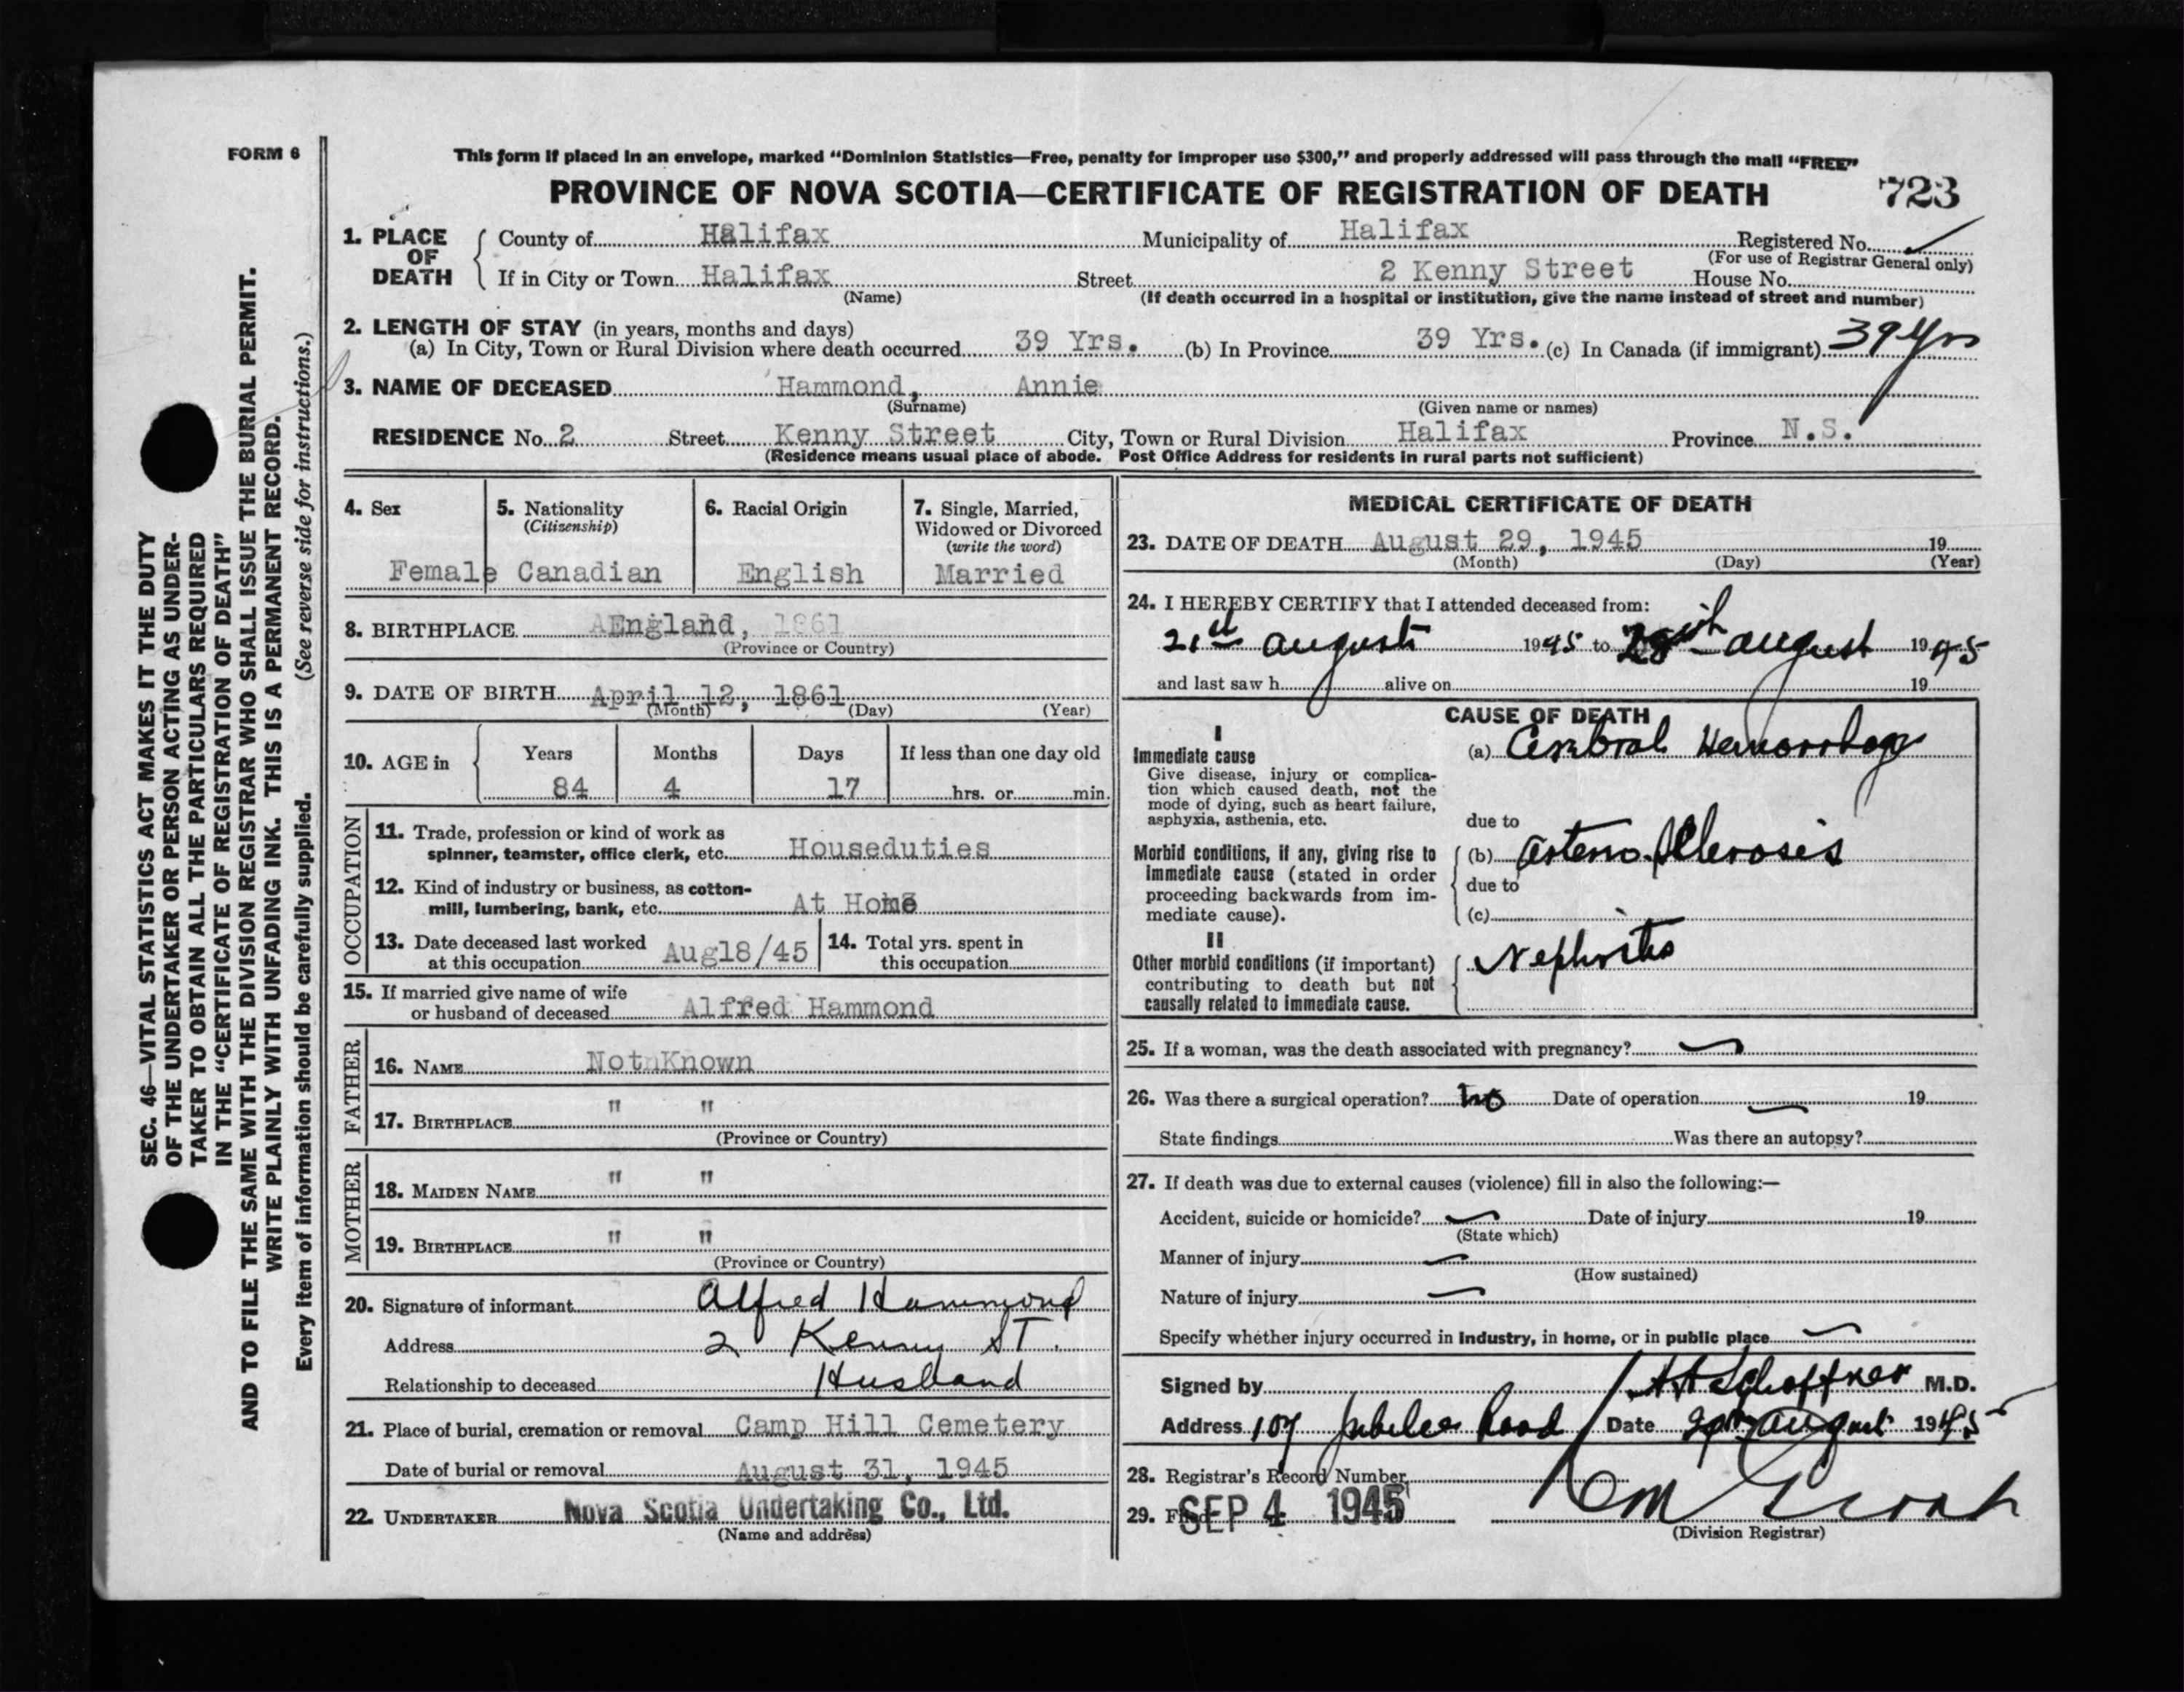 FORM 6
This form if placed in an envelope, marked "Dominion Statistics—Free, penalty for improper use $300," and properly addressed will pass through the mail "FREE"
PROVINCE OF NOVA SCOTIA—CERTIFICATE OF REGISTRATION OF DEATH
723
1. PLACE OF DEATH County of Halifax Municipality of Halifax Registered No.
(For use of Registrar General only)
If in City or Town Halifax Street 2 Kenny Street House No.
(Name) (If death occurred in a hospital or institution, give the name instead of street and number)
2. LENGTH OF STAY (in years, months and days)
(a) In City, Town or Rural Division where death occurred 39 Yrs. (b) In Province 39 Yrs. (c) In Canada (if immigrant) 39 Yrs
3. NAME OF DECEASED Hammond, Annie
(Surname) (Given name or names)
RESIDENCE No. 2 Street Kenny Street City, Town or Rural Division Halifax Province N.S.
(Residence means usual place of abode. Post Office Address for residents in rural parts not sufficient)
4. Sex 5. Nationality 6. Racial Origin 7. Single, Married,
(Citizenship) Widowed or Divorced
(write the word)
Female Canadian English Married
8. BIRTHPLACE England, 1861
(Province or Country)
9. DATE OF BIRTH April 12, 1861
(Month) (Day) (Year)
10. AGE in Years Months Days If less than one day old
84 4 17 hrs. or min.
OCCUPATION
11. Trade, profession or kind of work as
spinner, teamster, office clerk, etc. Houseduties
12. Kind of industry or business, as cotton-
mill, lumbering, bank, etc. At Home
13. Date deceased last worked 14. Total yrs. spent in
at this occupation Aug18/45 this occupation
15. If married give name of wife
or husband of deceased Alfred Hammond
FATHER
16. NAME Not Known
17. BIRTHPLACE " "
(Province or Country)
MOTHER
18. MAIDEN NAME " "
19. BIRTHPLACE " "
(Province or Country)
20. Signature of informant Alfred Hammond
Address 2 Kenny ST.
Relationship to deceased Husband
21. Place of burial, cremation or removal Camp Hill Cemetery
Date of burial or removal August 31, 1945
22. UNDERTAKER Nova Scotia Undertaking Co., Ltd.
(Name and address)
MEDICAL CERTIFICATE OF DEATH
23. DATE OF DEATH August 29, 1945 19
(Month) (Day) (Year)
24. I HEREBY CERTIFY that I attended deceased from:
21st august 1945 to august 1945
and last saw h alive on 19
CAUSE OF DEATH
I
Immediate cause (a) Cerebral Hemorrhage
Give disease, injury or complica-
tion which caused death, not the
mode of dying, such as heart failure,
asphyxia, asthenia, etc.
due to
Morbid conditions, if any, giving rise to (b) Arterio Sclerosis
immediate cause (stated in order
proceeding backwards from im- due to
mediate cause). (c)
II
Other morbid conditions (if important) Nephritis
contributing to death but not
causally related to immediate cause.
25. If a woman, was the death associated with pregnancy? —
26. Was there a surgical operation? no Date of operation — 19
State findings Was there an autopsy?
27. If death was due to external causes (violence) fill in also the following:—
Accident, suicide or homicide? — Date of injury 19
(State which)
Manner of injury —
(How sustained)
Nature of injury —
Specify whether injury occurred in industry, in home, or in public place —
Signed by M.D.
Address 107 Jubilee Road Date august 1945
28. Registrar's Record Number
29. Filed SEP 4 1945
(Division Registrar)
SEC. 46—VITAL STATISTICS ACT MAKES IT THE DUTY
OF THE UNDERTAKER OR PERSON ACTING AS UNDER-
TAKER TO OBTAIN ALL THE PARTICULARS REQUIRED
IN THE "CERTIFICATE OF REGISTRATION OF DEATH"
AND TO FILE THE SAME WITH THE DIVISION REGISTRAR WHO SHALL ISSUE THE BURIAL PERMIT.
WRITE PLAINLY WITH UNFADING INK. THIS IS A PERMANENT RECORD.
Every item of information should be carefully supplied. (See reverse side for instructions.)